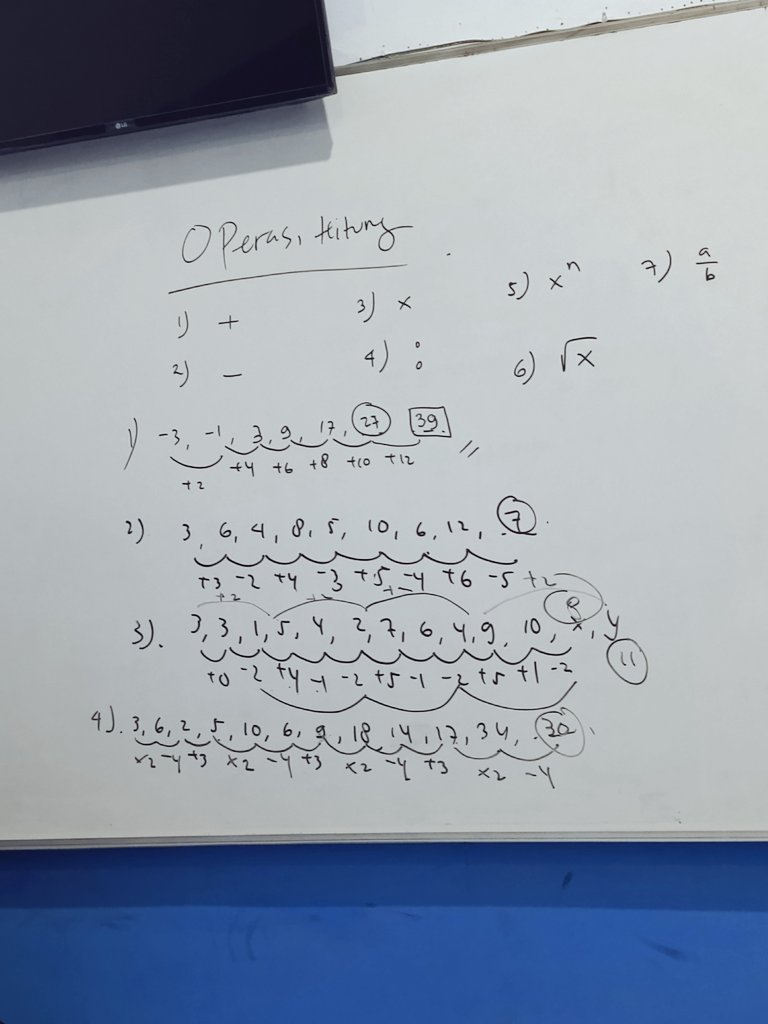 LG
Operasi Hitung
1) + 3) x 5) xⁿ 7) a/b
2) - 4) : 6) √x
1) -3, -1, 3, 9, 17, 27 39
+2 +4 +6 +8 +10 +12
2) 3, 6, 4, 8, 5, 10, 6, 12, 7
+3 -2 +4 -3 +5 -4 +6 -5
3). 3, 3, 1, 5, 4, 2, 7, 6, 4, 9, 10, x, y
11
+0 -2 +4 -1 -2 +5 -1 -2 +5 +1 -2
4). 3, 6, 2, 5, 10, 6, 9, 18, 14, 17, 34, 30
x2 -4 +3 x2 -4 +3 x2 -4 +3 x2 -4